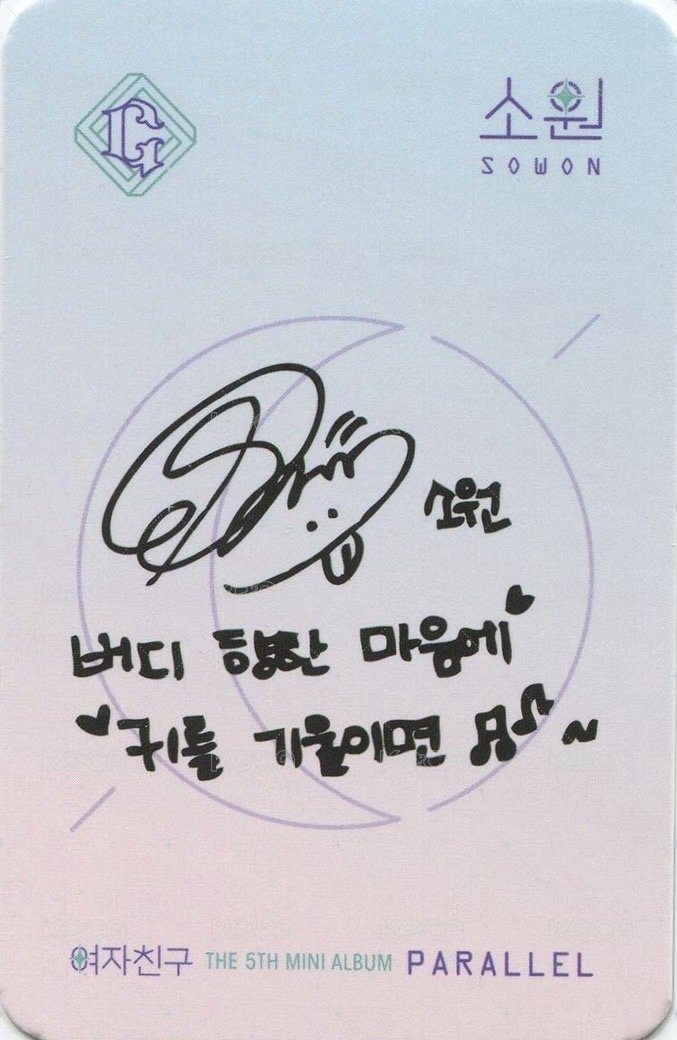 G
소원
SOWON
소원
버디 향한 마음에
귀를 기울이면
여자친구 THE 5TH MINI ALBUM PARALLEL